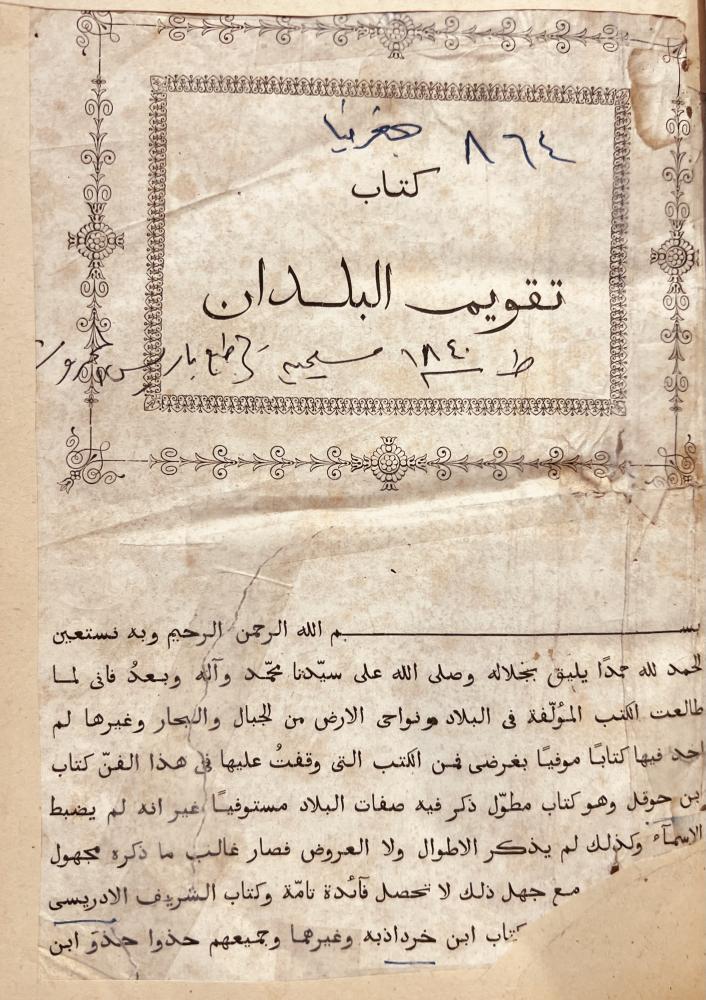 ٨٦٤ جغرفيا
كتاب
تقويم البلدان
ط ١٨٤٠ مسيحيه طبع باريس
بسم الله الرحمن الرحيم وبه نستعين
الحمد لله حمدًا يليق بجلاله وصلى الله على سيّدنا محمّد وآله وبعدُ فانى لما
طالعت الكتب المؤلّفة فى البلاد ونواحى الارض من الجبال والبحار وغيرها لم
اجد فيها كتابًا موفيًا بغرضى فمن الكتب التى وقفتُ عليها فى هذا الفنّ كتاب
ابن حوقل وهو كتاب مطوّل ذكر فيه صفات البلاد مستوفيًا غير انه لم يضبط
الاسمآء وكذلك لم يذكر الاطوال ولا العروض فصار غالب ما ذكره مجهول
مع جهل ذلك لا تحصل فآئدة تامّة وكتاب الشريف الادريسى
كتاب ابن خرداذبه وغيرهما وجميعهم حذوا حذوَ ابن